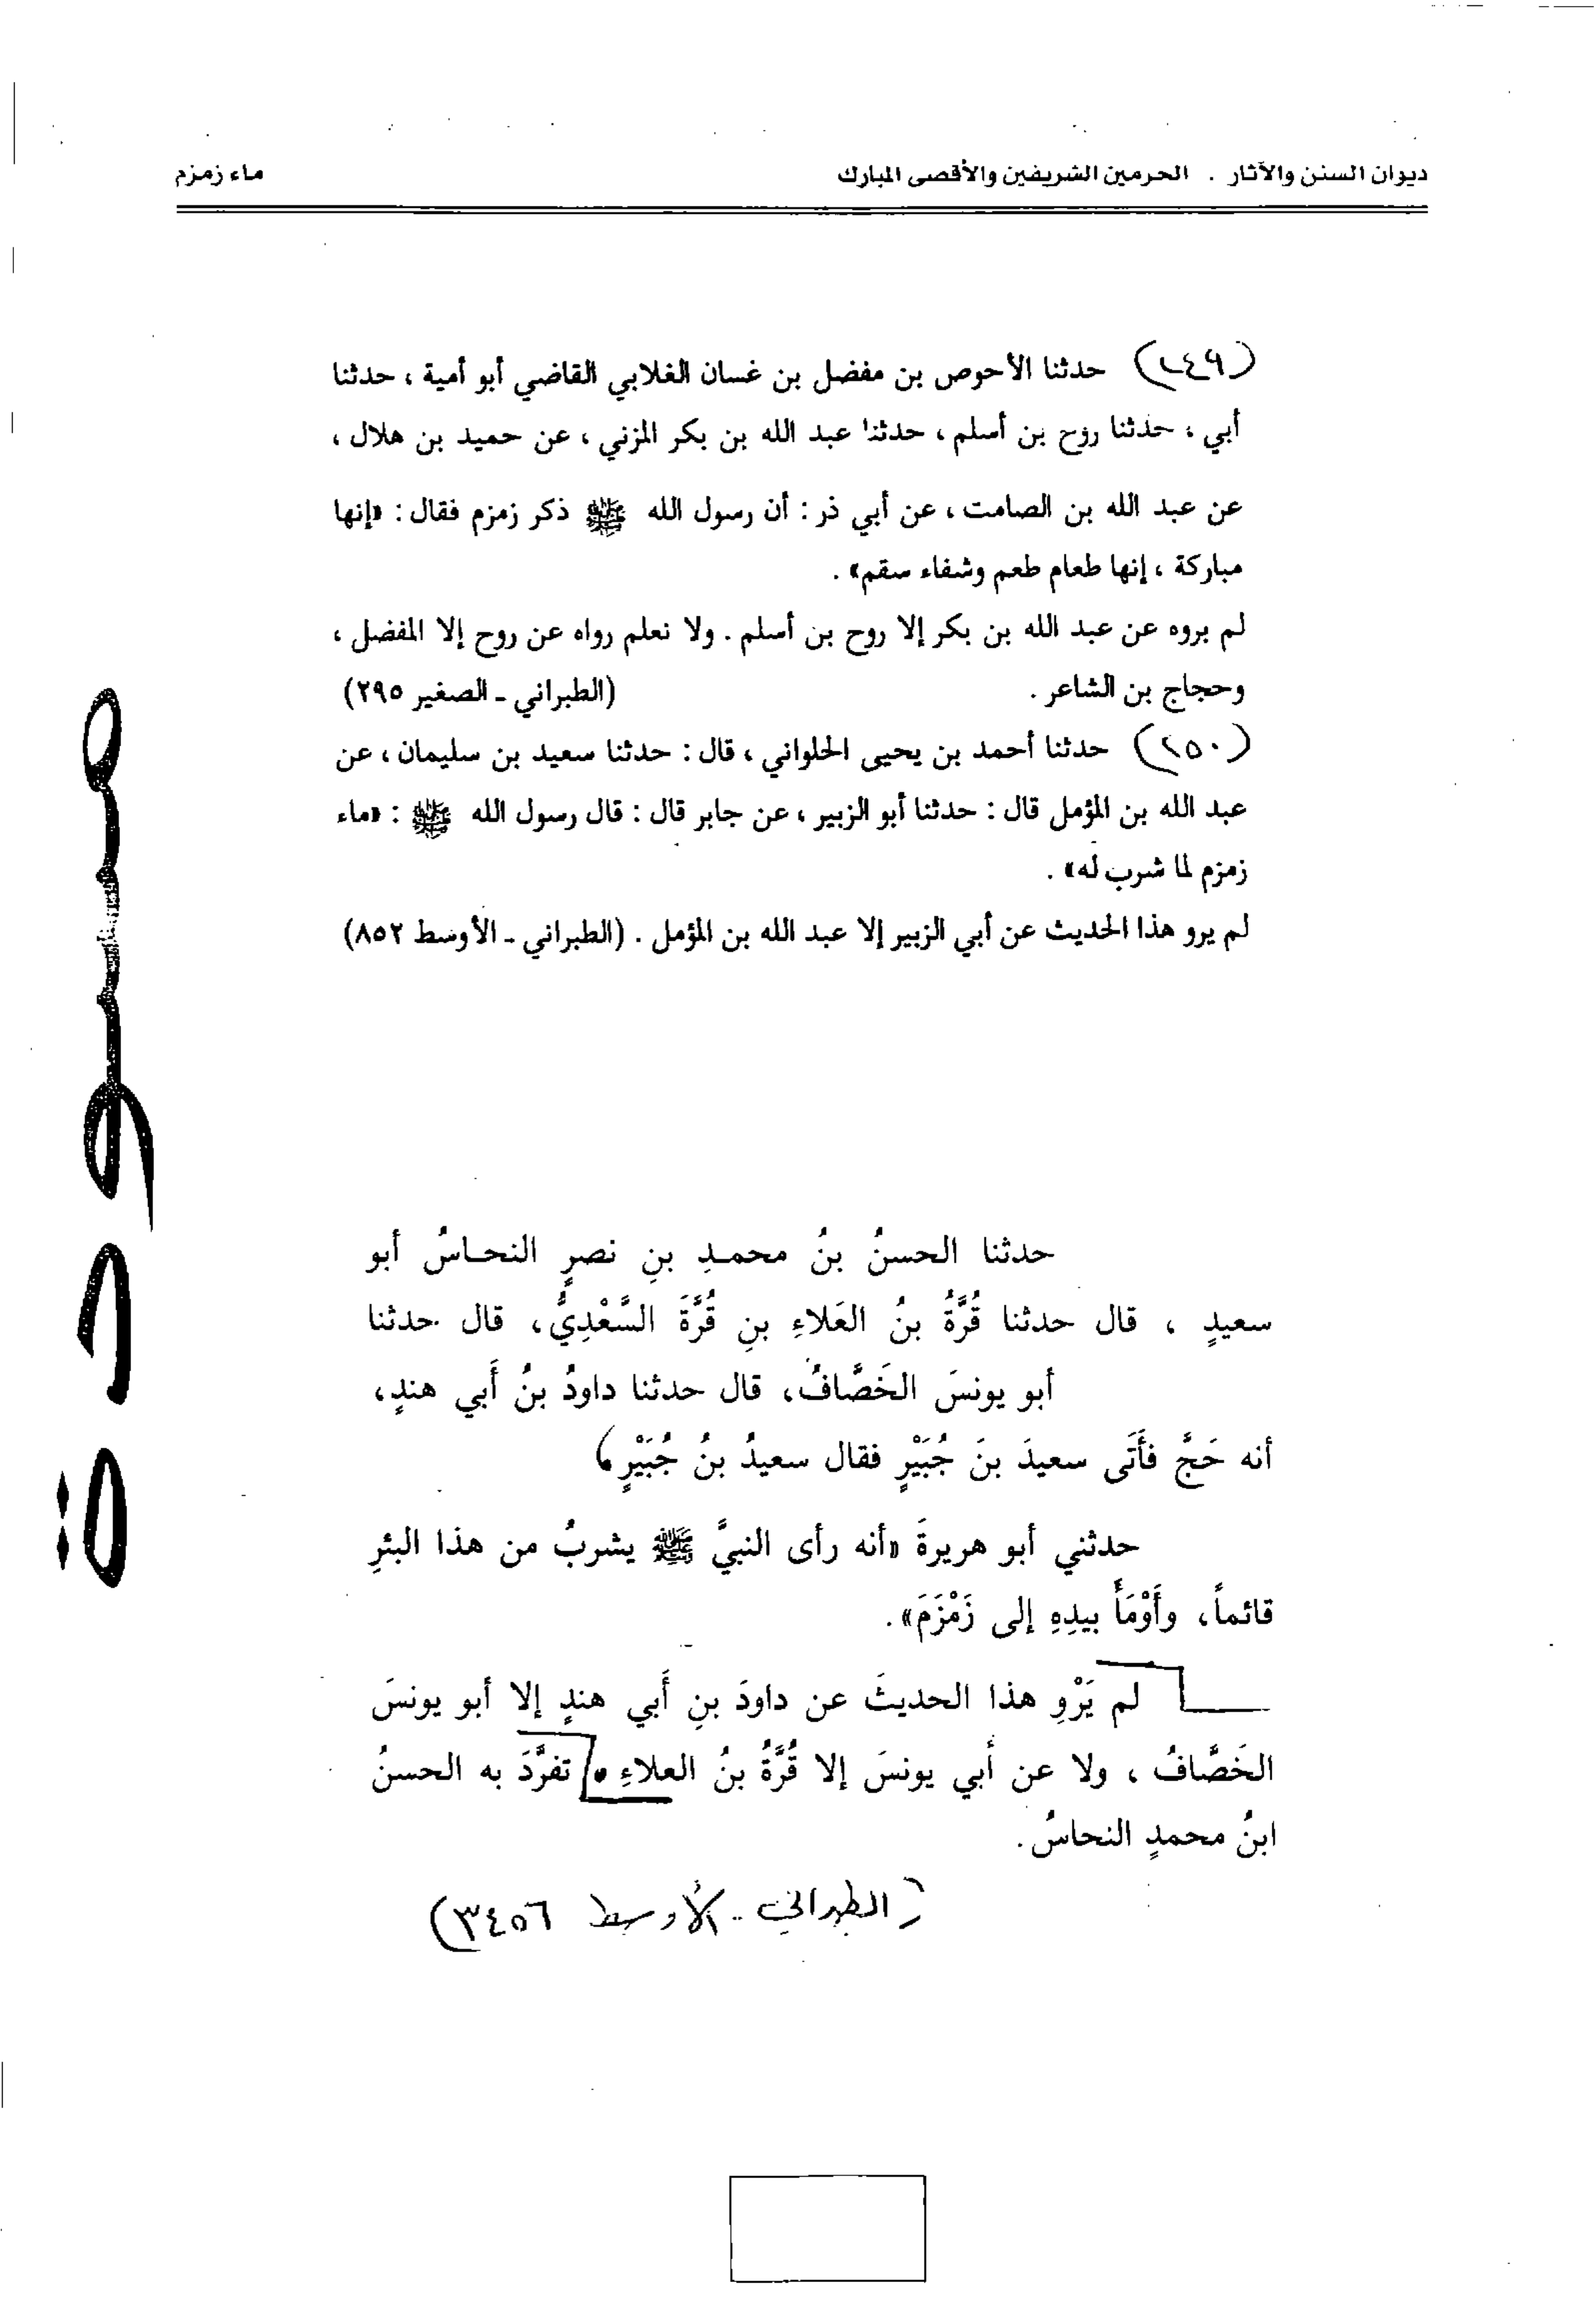 ديوان السنن والآثار . الحرمين الشريفين والأقصى المبارك
ماء زمزم
(٢٤٩) حدثنا الأحوص بن مفضل بن غسان الغلابي القاضي أبو أمية ، حدثنا
أبي ، حدثنا روح بن أسلم ، حدثنا عبد الله بن بكر المزني ، عن حميد بن هلال ،
عن عبد الله بن الصامت ، عن أبي ذر : أن رسول الله ﷺ ذكر زمزم فقال : «إنها
مباركة ، إنها طعام طعم وشفاء سقم» .
لم يروه عن عبد الله بن بكر إلا روح بن أسلم . ولا نعلم رواه عن روح إلا المفضل ،
وحجاج بن الشاعر . (الطبراني ـ الصغير ٢٩٥)
(٢٥٠) حدثنا أحمد بن يحيى الحلواني ، قال : حدثنا سعيد بن سليمان ، عن
عبد الله بن المؤمل قال : حدثنا أبو الزبير ، عن جابر قال : قال رسول الله ﷺ : «ماء
زمزم لما شرب له» .
لم يرو هذا الحديث عن أبي الزبير إلا عبد الله بن المؤمل . (الطبراني ـ الأوسط ٨٥٢)
حدثنا الحسنُ بنُ محمـدِ بنِ نصرٍ النحـاسُ أبو
سعيدٍ ، قال حدثنا قُرَّةُ بنُ العَلاءِ بنِ قُرَّةَ السَّعْدِيُّ، قال حدثنا
أبو يونسَ الخَصَّافُ، قال حدثنا داودُ بنُ أَبي هندٍ،
أنه حَجَّ فأَتَى سعيدَ بنَ جُبَيْرٍ فقال سعيدُ بنُ جُبَيْرٍ
حدثني أبو هريرةَ «أنه رأى النبيَّ ﷺ يشربُ من هذا البئرِ
قائماً، وأَوْمَأَ بيدِهِ إلى زَمْزَمَ».
لم يَرْوِ هذا الحديثَ عن داودَ بنِ أَبي هندٍ إلا أبو يونسَ
الخَصَّافُ ، ولا عن أَبي يونسَ إلا قُرَّةُ بنُ العلاءِ . تفرَّدَ به الحسنُ
ابنُ محمدٍ النحاسُ.
(الطبراني - الأوسط ٣٤٥٦)
مسودة